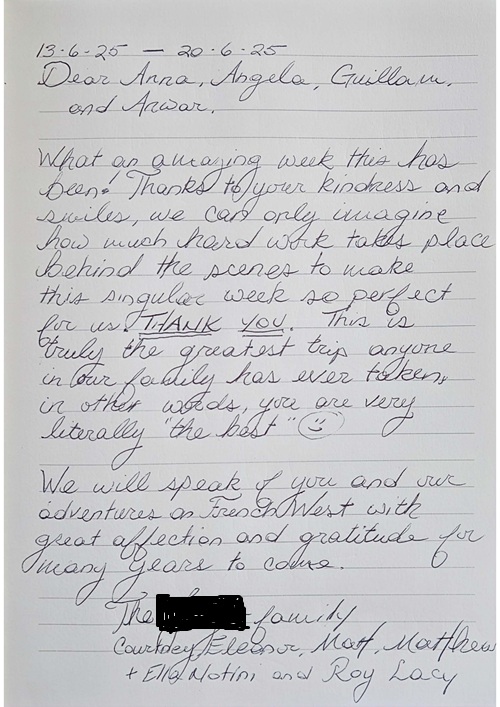 13·6·25 — 20·6·25
Dear Anna, Angela, Guillam,
and Anwar,
What an amazing week this has
been! Thanks to your kindness and
smiles, we can only imagine
how much hard work takes place
behind the scenes to make
this singular week so perfect
for us. THANK YOU. This is
truly the greatest trip anyone
in our family has ever taken,
in other words, you are very
literally "the best" 
We will speak of you and our
adventures on French West with
great affection and gratitude for
many years to come.
The family
Courtney, Eleanor, Matt, Matthew
+ Ella Notini and Roy Lacy